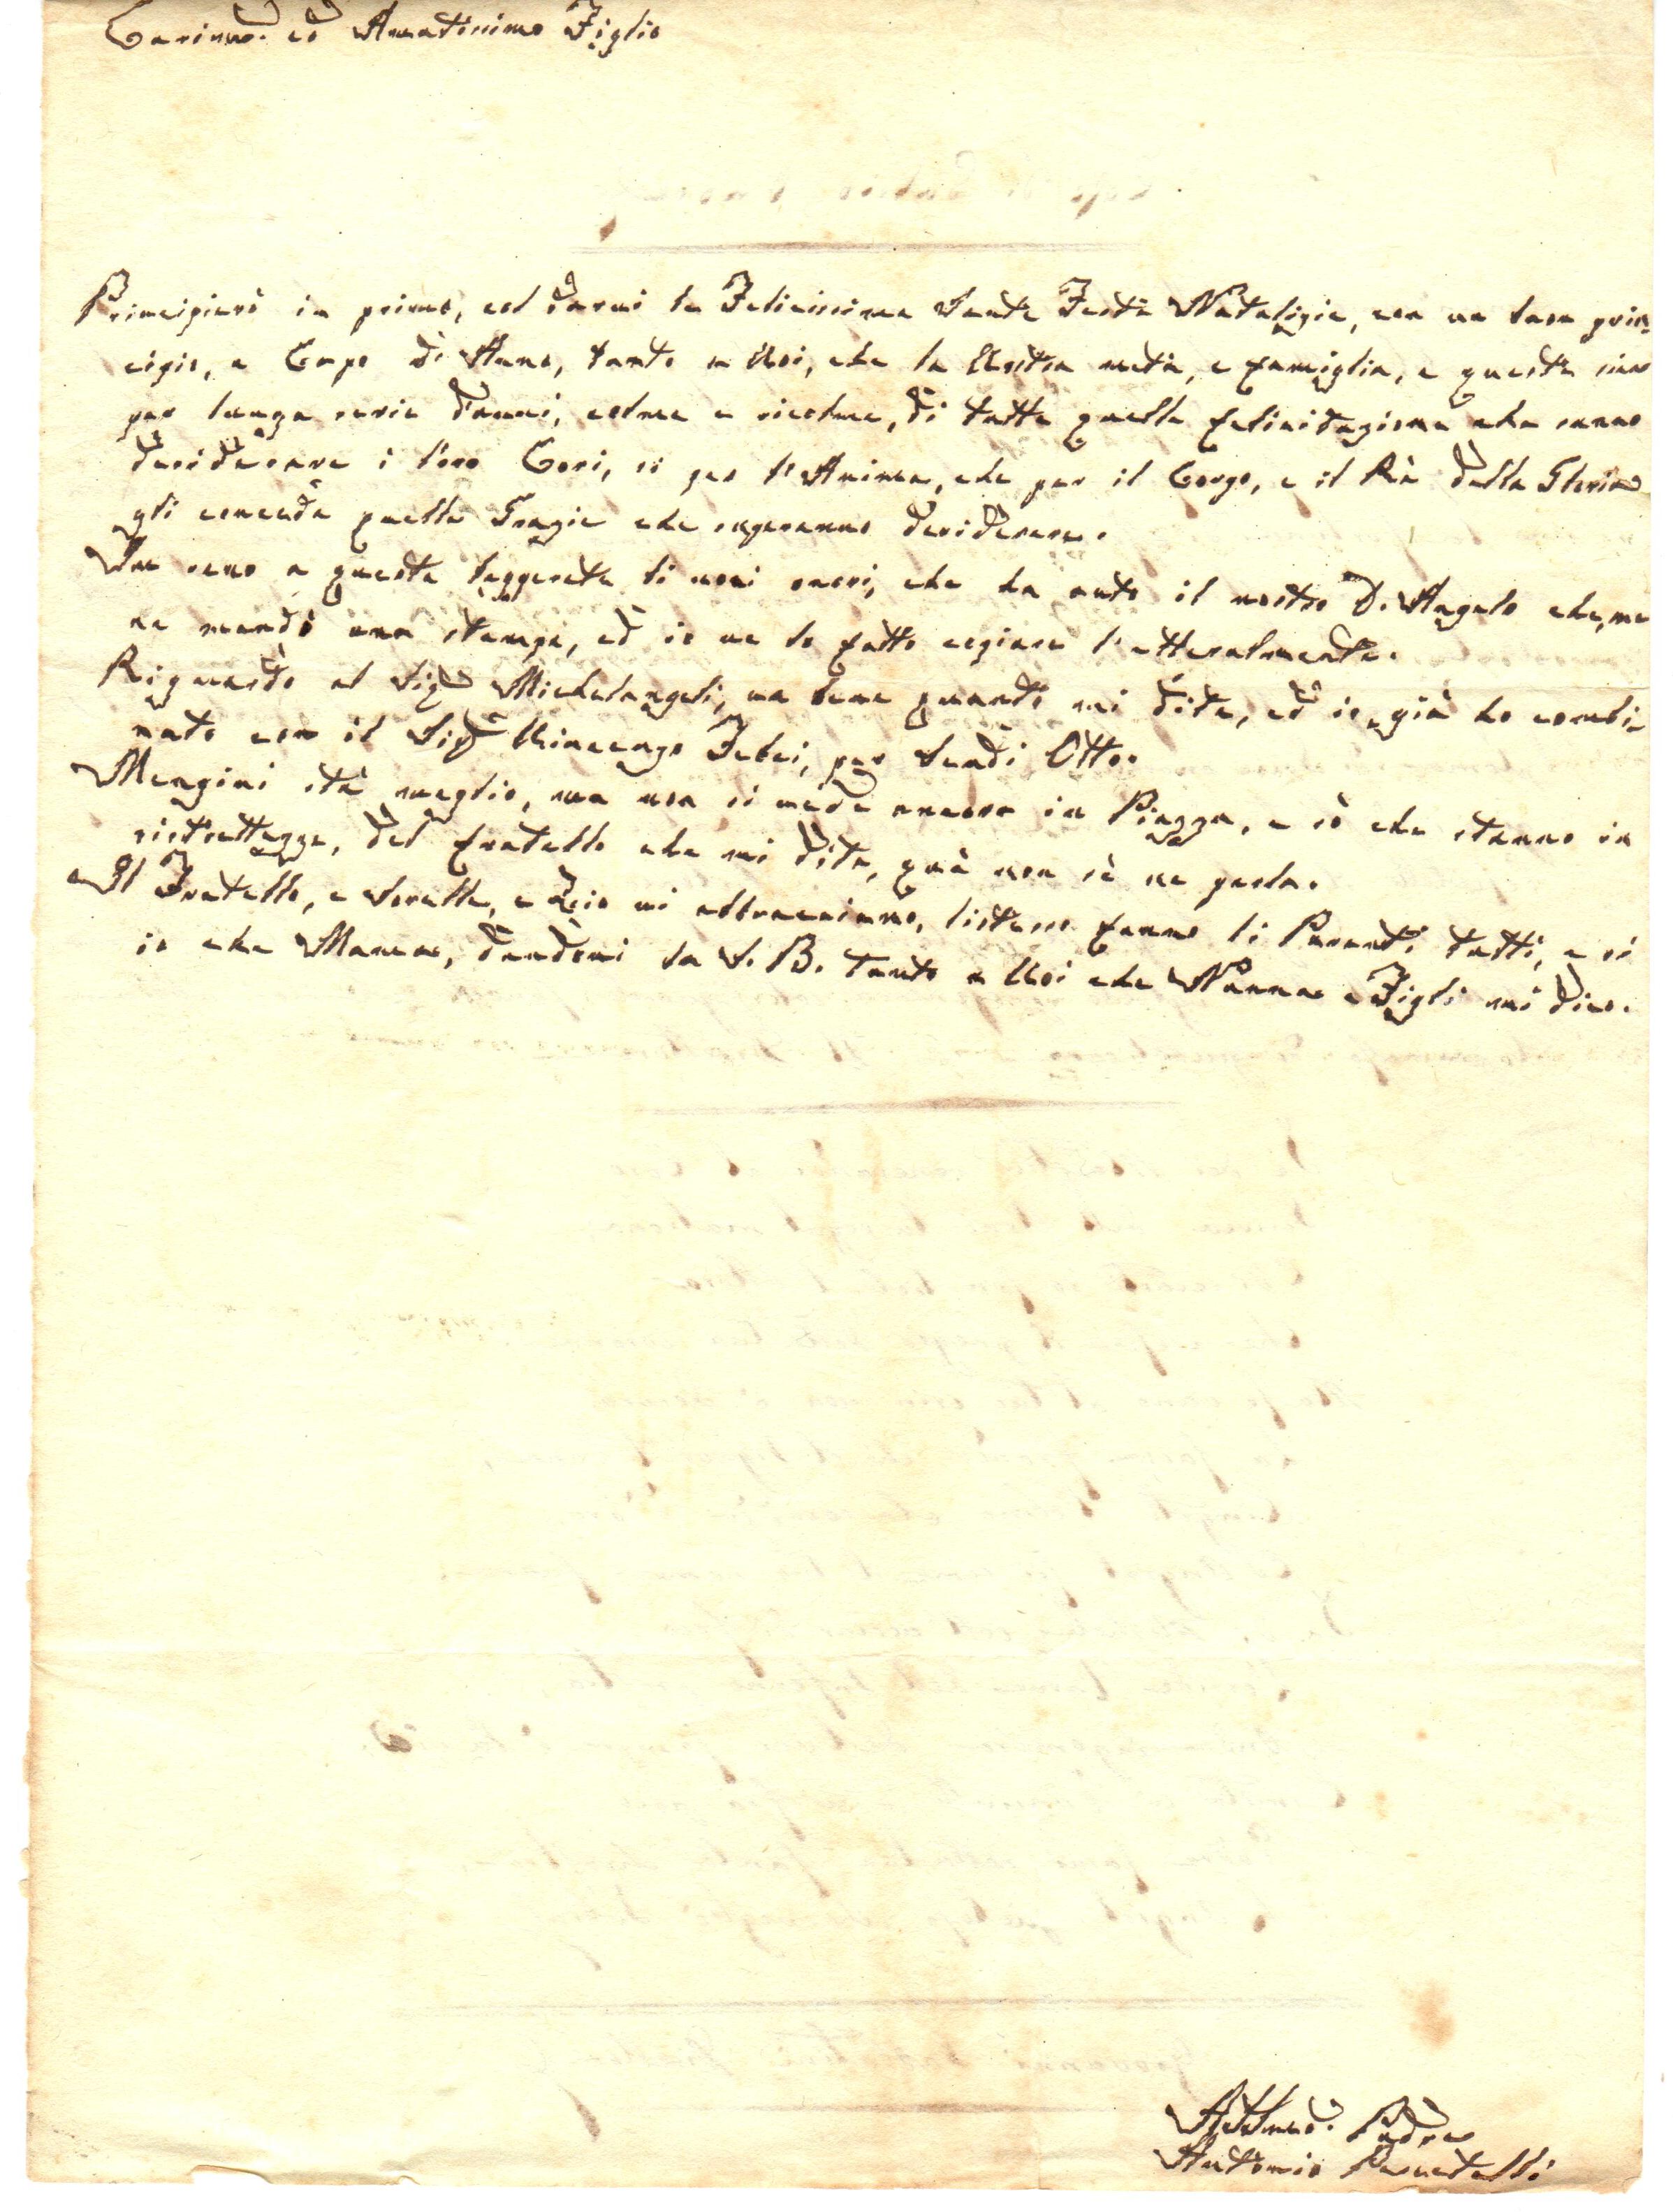 Carismo. ed Amatissimo Figlio
Principierò in primo, col darvi le Felicissime Sante Feste Natalizie, con un bon prin=
cipio, e Capo di Anno, tanto a Voi, che la Vostra metà, e famiglia, e queste sino
per lunga serie d'anni, colme e ricolme, di tutte quelle felicitazione che sanno
desiderare i loro Cori, si per l'Anima, che per il Corpo, e il Rè della Gloria
gli conceda quelle Grazie che saperanno desiderare.
In seno a questa leggerete li novi onori, che ha auto il nostro D. Angelo che, me
ne mandò una stampa, ed io ne lo fatto copiare l'etteralmente.
Riguardo al Sigr Michelangeli, va bene quanto mi dite, ed io già ho combi=
nato con il Sigr Vincenzo Febei, per Scudi Otto.
Mengini stà meglio, ma non si vede ancora in Piazza, e sò che stanno in
ristrettezze, del fratello che mi dite, quà non sè ne parla.
Il Fratello, e Sorelle, e Zio vi abbracciano, listesso fanno li Parenti tutti, e si
io che Mamma, dandovi la S. B. tanto a Voi che Nanna e Figli mi dico.
Affmo. Padre
Antonio